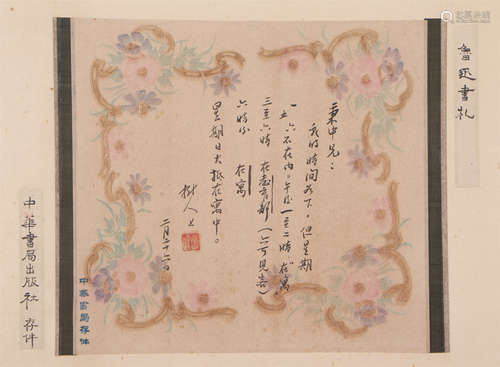 魯迅書札
秉中兄：
我的時間如下，但星期
一五六不在内。午后一至二時 在寓
三至六時 在教育部（亦可見客）
六時后 在寓
星期日大抵在寓中。
樹人 上
二月二十六日
中華書局存件
中華書局出版社 存件